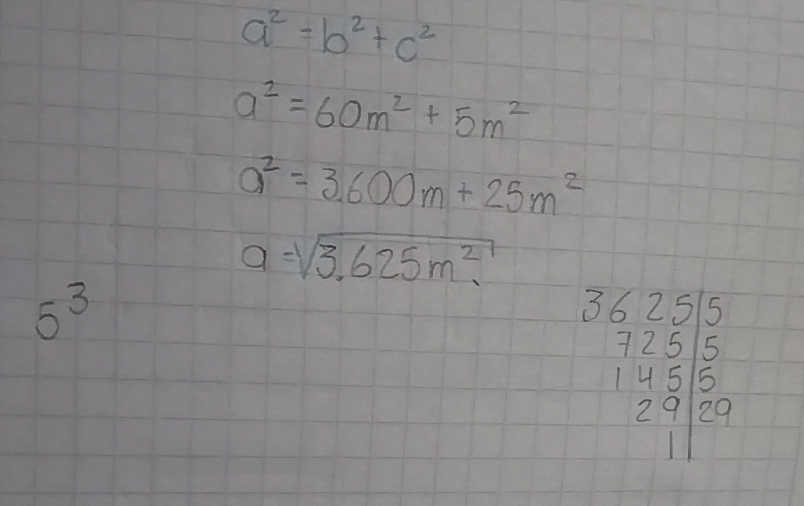 a² = b² + c²
a² = 60m² + 5m²
a² = 3.600m + 25m²
a = √3.625m².
5³
3625|5
725|5
145|5
29|29
1|